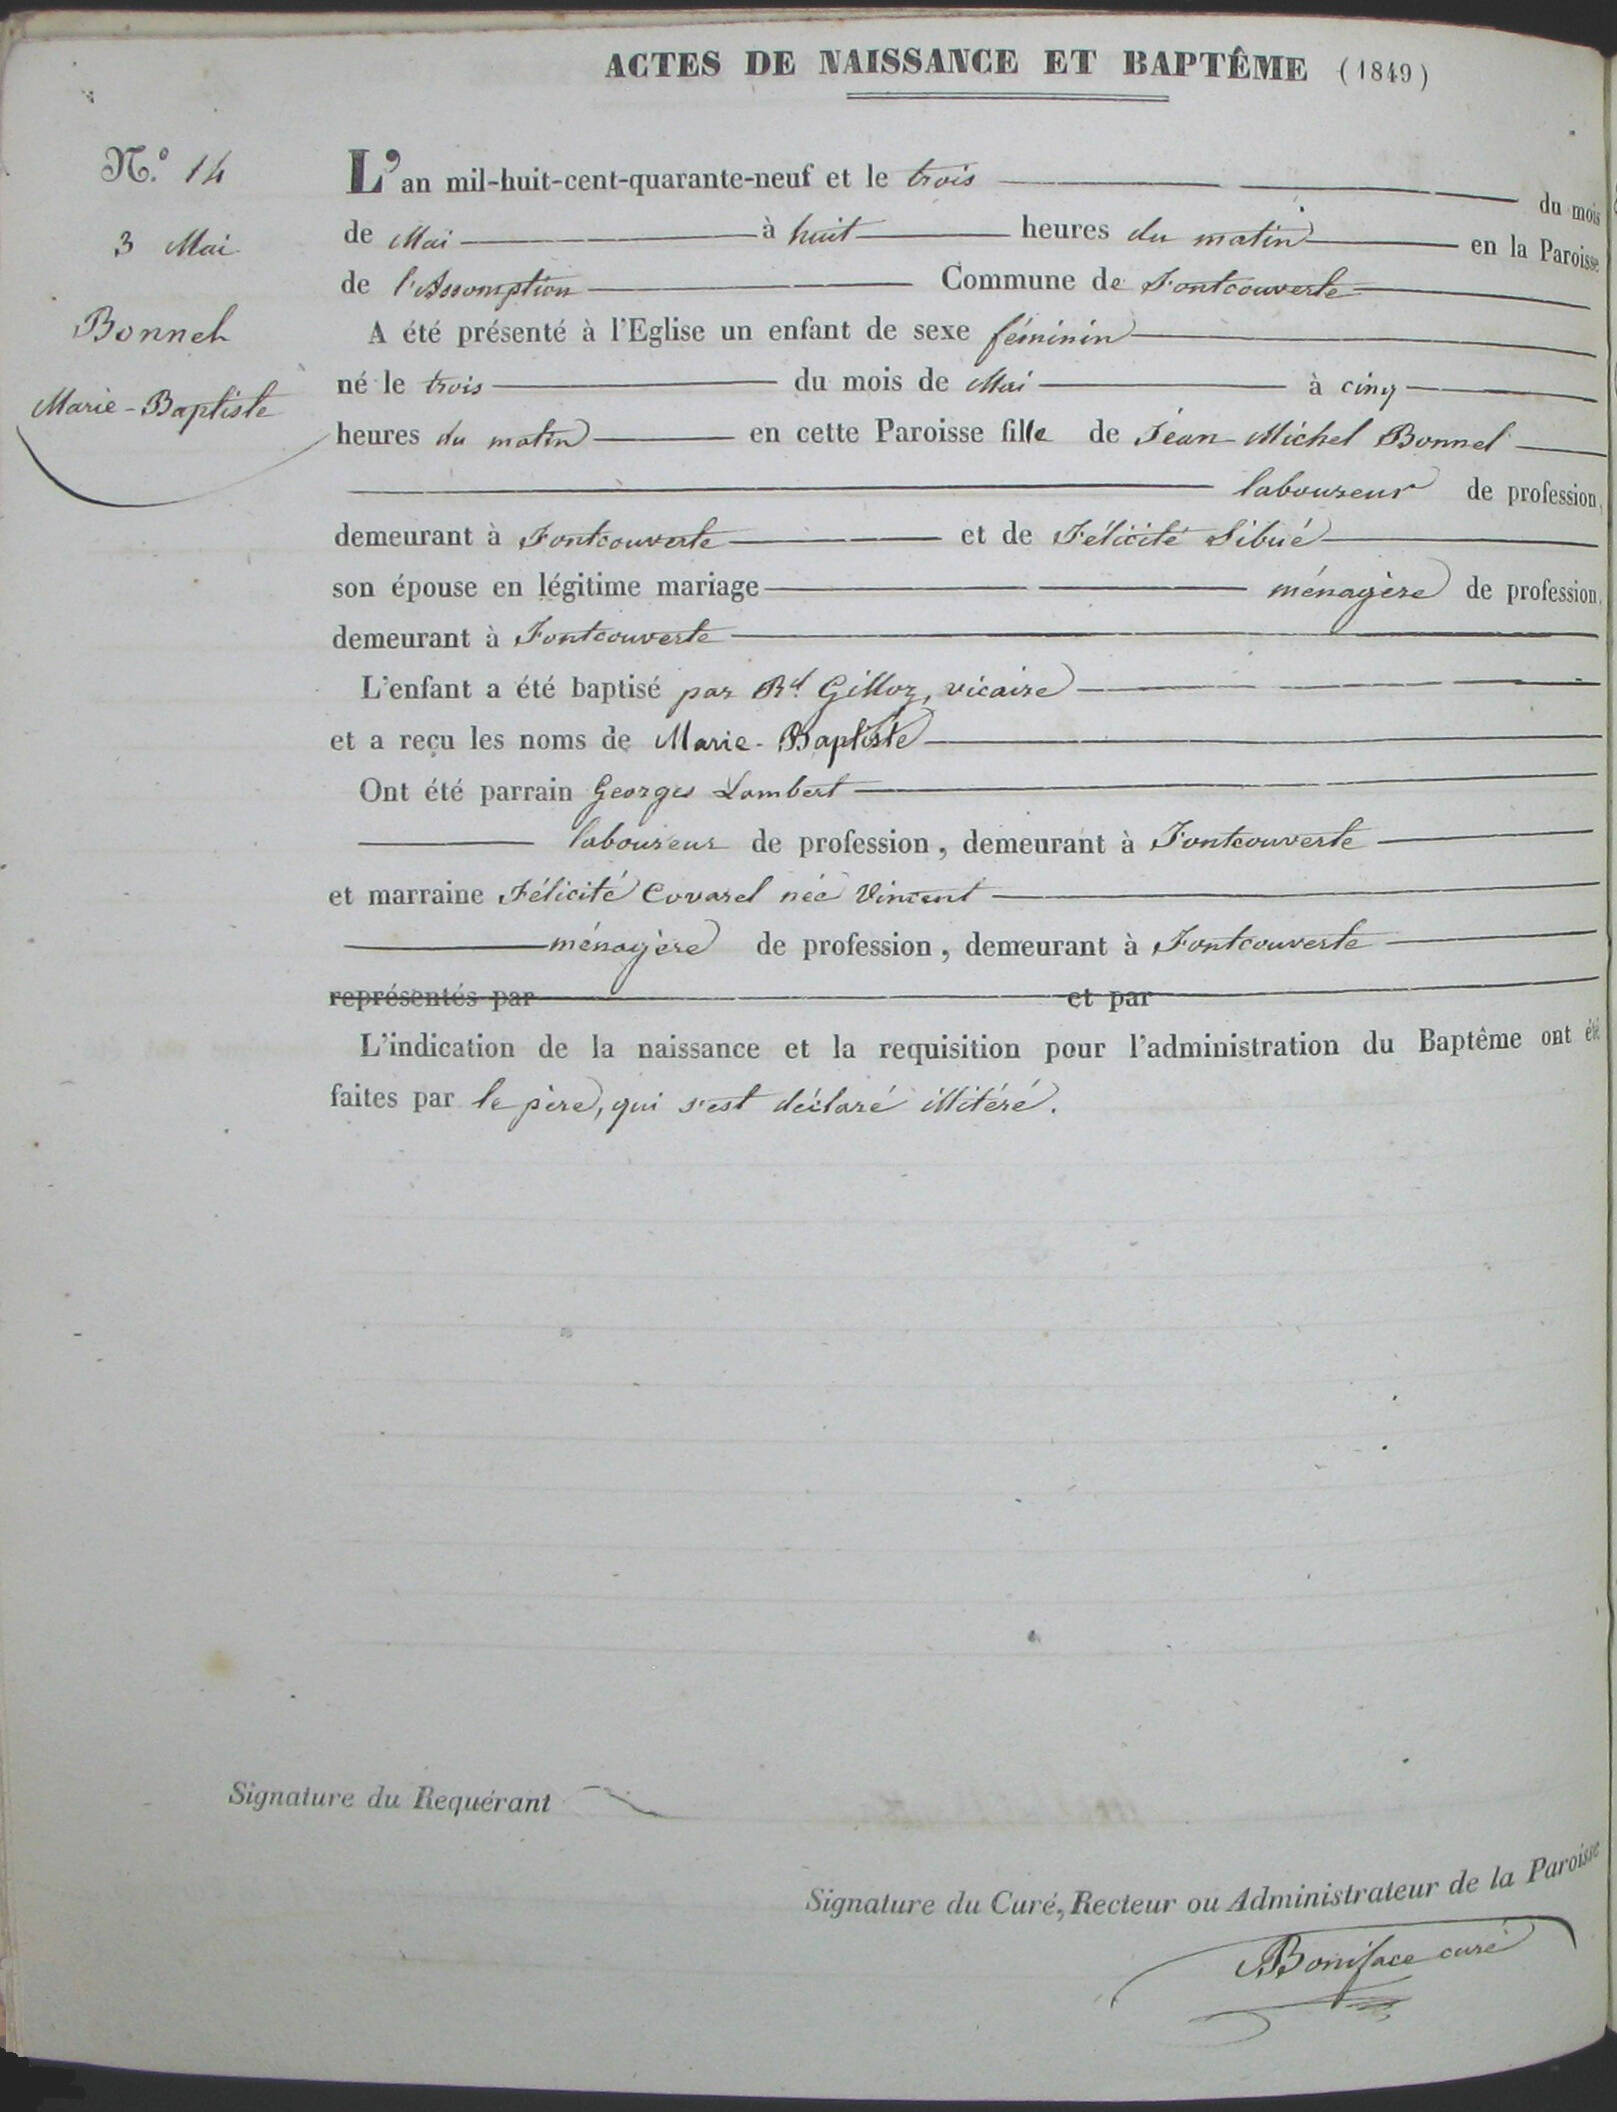 ACTES DE NAISSANCE ET BAPTÊME (1849)
N.º 14
3 Mai
Bonnel
Marie-Baptiste
L'an mil-huit-cent-quarante-neuf et le trois du mois
de Mai à huit heures du matin en la Paroisse
de l'Assomption Commune de Fontcouverte
A été présenté à l'Eglise un enfant de sexe féminin
né le trois du mois de Mai à cinq
heures du matin en cette Paroisse fille de Jean-Michel Bonnel
laboureur de profession,
demeurant à Fontcouverte et de Félicité Sibué
son épouse en légitime mariage ménagère de profession,
demeurant à Fontcouverte
L'enfant a été baptisé par Rd Gilloz, vicaire
et a reçu les noms de Marie-Baptiste
Ont été parrain Georges Lambert
laboureur de profession, demeurant à Fontcouverte
et marraine Félicité Covarel née Vincent
ménagère de profession, demeurant à Fontcouverte
représentés par et par
L'indication de la naissance et la requisition pour l'administration du Baptême ont été
faites par le père, qui s'est déclaré illitéré.
Signature du Requérant
Signature du Curé, Recteur ou Administrateur de la Paroisse
Boniface curé